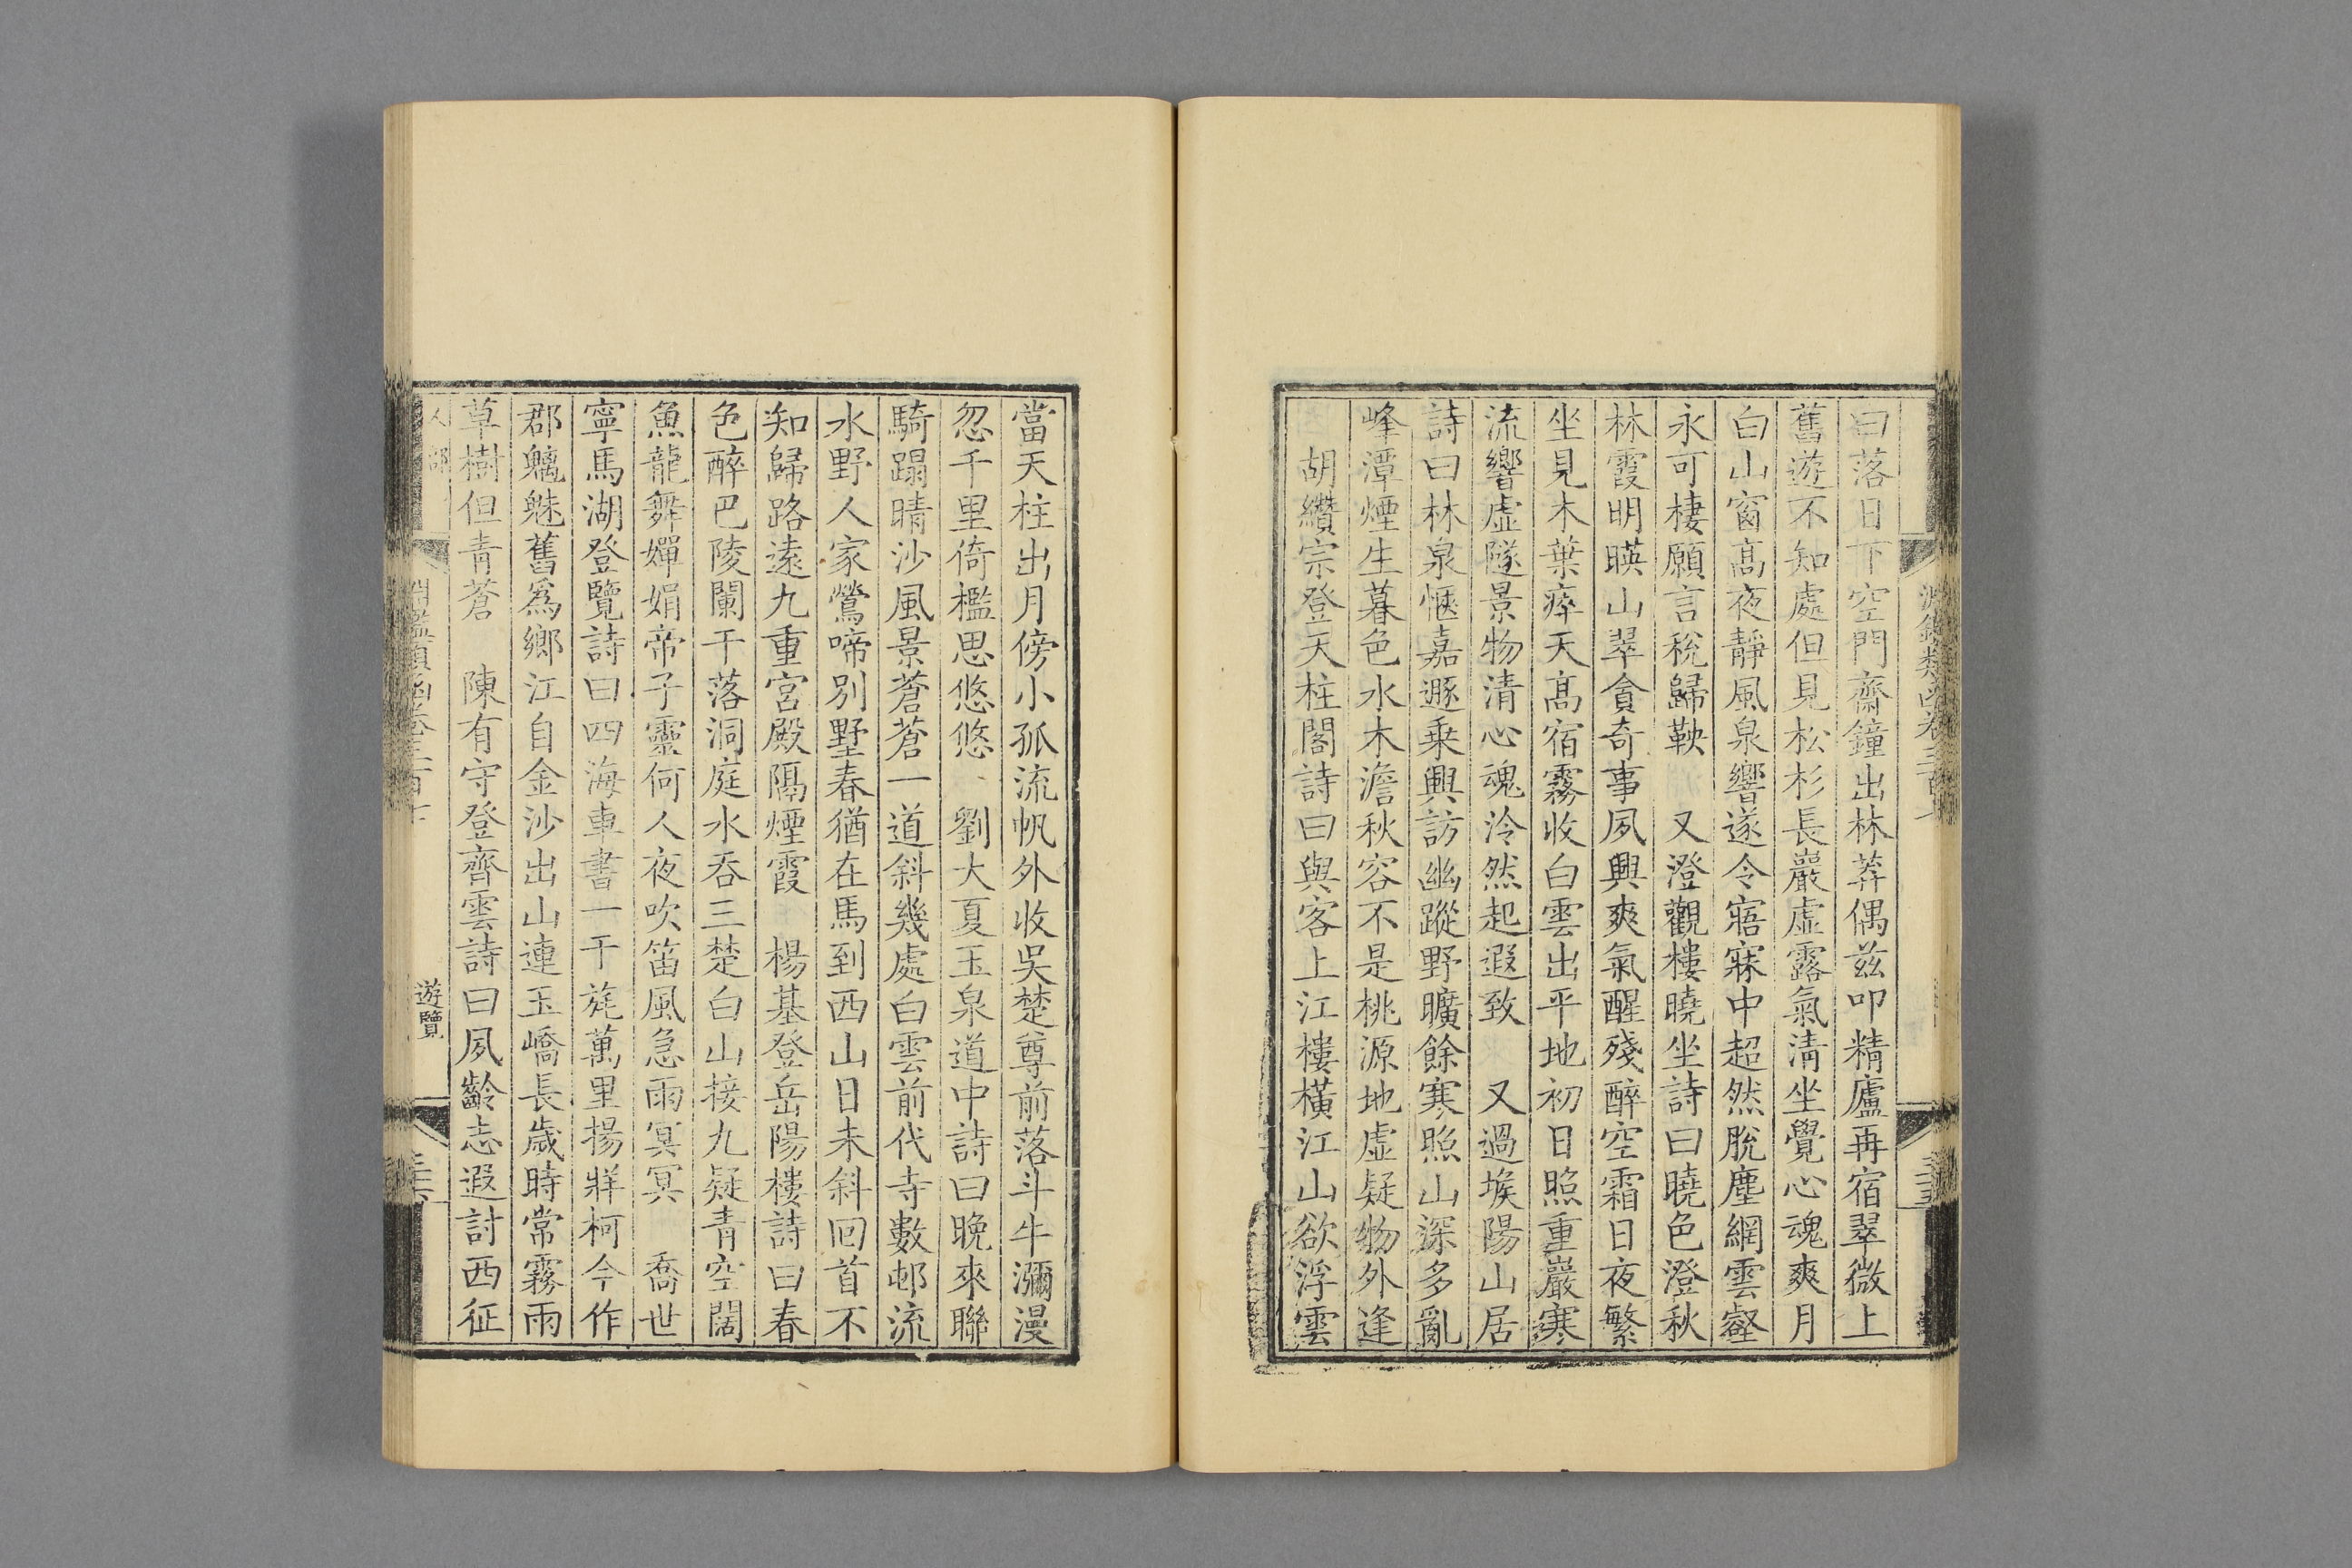 曰落日下空門齋鐘出林莽偶茲叩精廬再宿翠微上
舊遊不知處但見松杉長巖虛露氣清坐覺心魂爽月
白山窗高夜靜風泉響遂令寤寐中超然脫塵網雲壑
永可棲願言稅歸鞅　又澄觀樓曉坐詩曰曉色澄秋
林霞明暎山翠貪奇事夙興爽氣醒殘醉空霜日夜繁
坐見木葉瘁天高宿霧收白雲出平地初日照重巖寒
流響虛隧景物清心魂泠然起遐致　又過堠陽山居
詩曰林泉愜嘉遯乗興訪幽蹤野曠餘寒照山深多亂
峰潭煙生暮色水木澹秋容不是桃源地虛疑物外逢
胡纘宗登天柱閣詩曰與客上江樓橫江山欲浮雲
當天柱出月傍小孤流帆外收吳楚尊前落斗牛瀰漫
忽千里倚檻思悠悠　劉大夏玉泉道中詩曰晚來聯
騎蹋晴沙風景蒼蒼一道斜幾處白雲前代寺數邨流
水野人家鶯啼別墅春猶在馬到西山日未斜回首不
知歸路遠九重宮殿隔煙霞　楊基登岳陽樓詩曰春
色醉巴陵闌干落洞庭水吞三楚白山接九疑青空闊
魚龍舞嬋娟帝子靈何人夜吹笛風急雨冥冥　喬世
寧馬湖登覽詩曰四海車書一干旄萬里揚牂柯今作
郡魑魅舊爲鄉江自金沙出山連玉嶠長歲時常霧雨
草樹但青蒼　陳有守登齊雲詩曰夙齡志遐討西征
人部
淵鑑類函卷三百七
遊覽